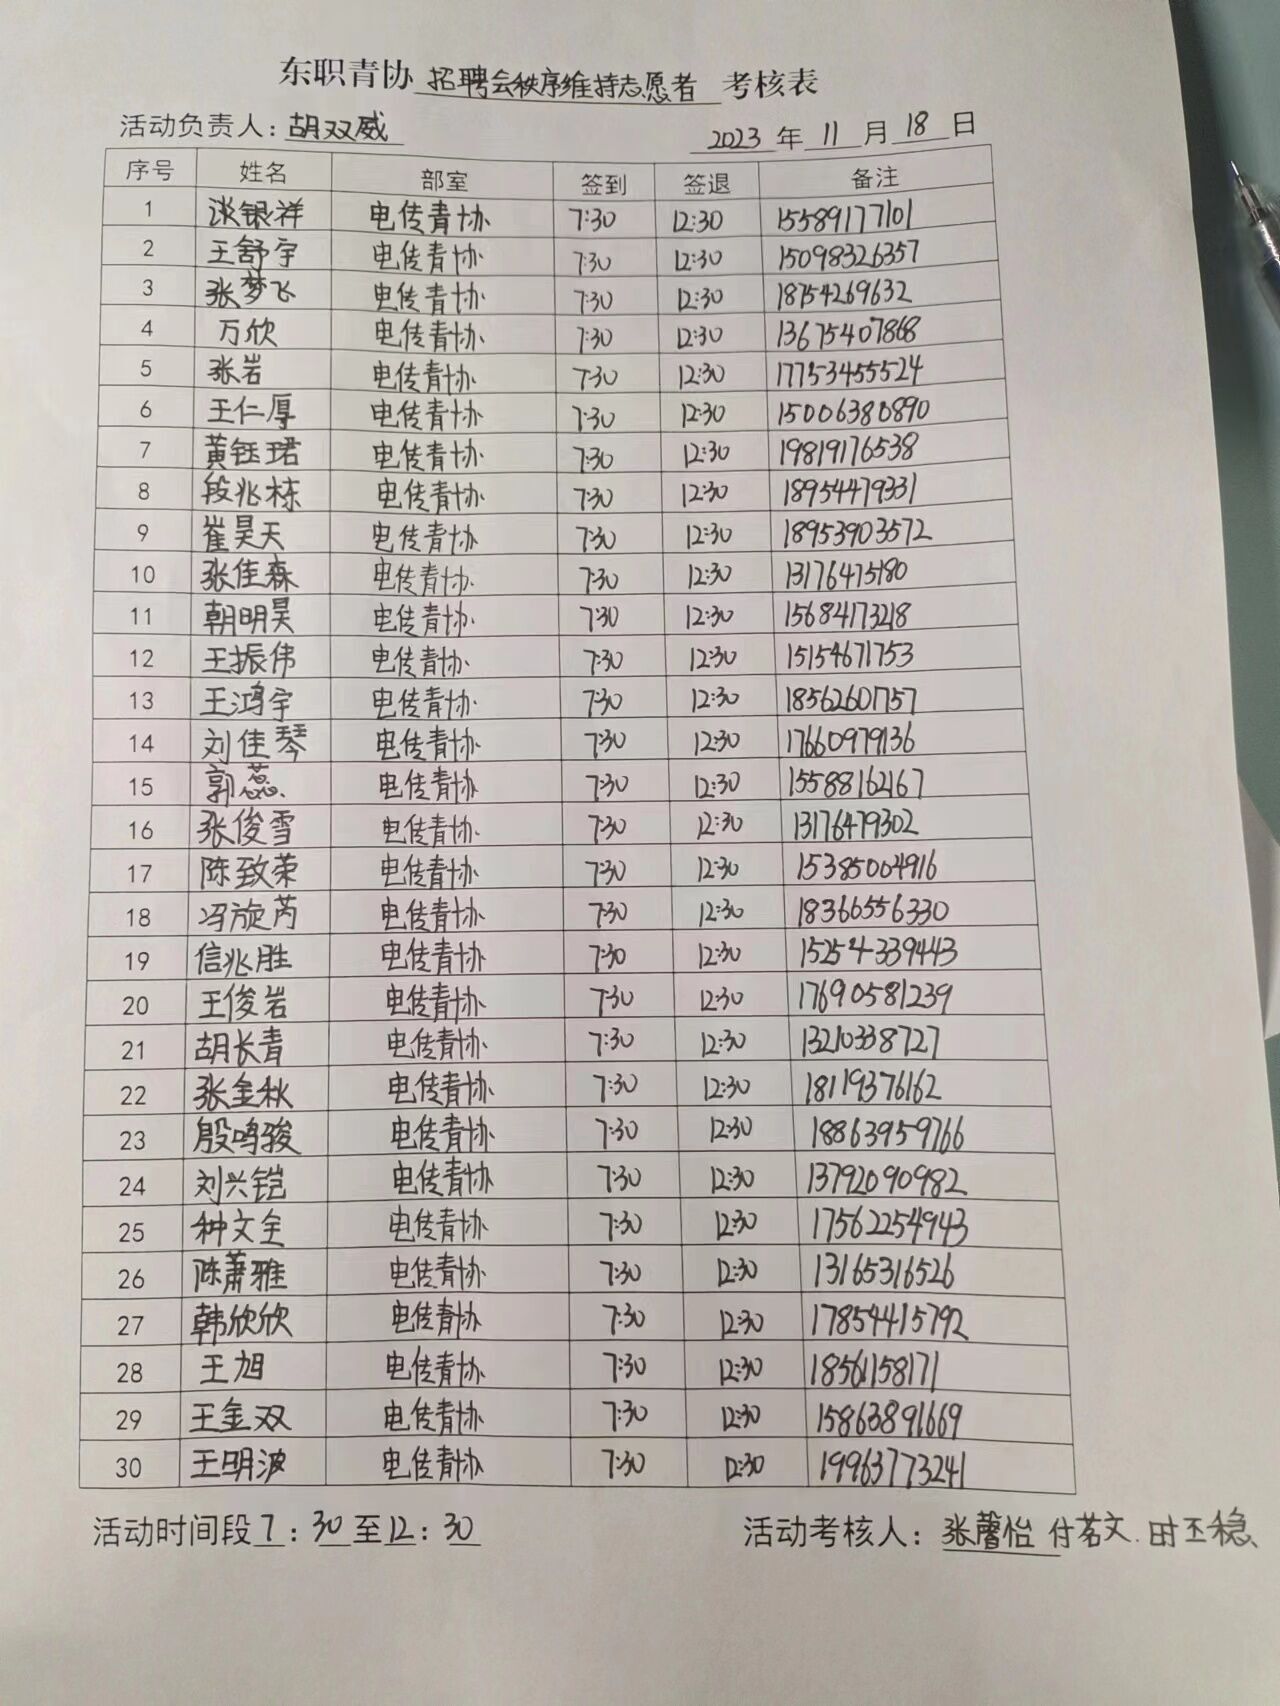 东职青协 招聘会秩序维持志愿者 考核表
活动负责人: 胡双威 2023 年 11 月 18 日
序号 姓名 部室 签到 签退 备注
1 谈银祥 电传青协 7:30 12:30 15589177101
2 王舒宇 电传青协 7:30 12:30 15098326357
3 张梦飞 电传青协 7:30 12:30 18754269632
4 万欣 电传青协 7:30 12:30 13675407868
5 张岩 电传青协 7:30 12:30 17753455524
6 王仁厚 电传青协 7:30 12:30 15006380890
7 黄钰珺 电传青协 7:30 12:30 19819176538
8 段兆栋 电传青协 7:30 12:30 18954479331
9 崔昊天 电传青协 7:30 12:30 18953903572
10 张佳森 电传青协 7:30 12:30 13176475180
11 朝明昊 电传青协 7:30 12:30 15684173218
12 王振伟 电传青协 7:30 12:30 15154671753
13 王鸿宇 电传青协 7:30 12:30 18562601757
14 刘佳琴 电传青协 7:30 12:30 17660979136
15 郭蕊 电传青协 7:30 12:30 15588162167
16 张俊雪 电传青协 7:30 12:30 13176479302
17 陈致荣 电传青协 7:30 12:30 15385004916
18 冯旋芮 电传青协 7:30 12:30 18366556330
19 信兆胜 电传青协 7:30 12:30 15254339443
20 王俊岩 电传青协 7:30 12:30 17690581239
21 胡长青 电传青协 7:30 12:30 13210338727
22 张金秋 电传青协 7:30 12:30 18119376162
23 殷鸣骏 电传青协 7:30 12:30 18863959766
24 刘兴铠 电传青协 7:30 12:30 13792090982
25 种文全 电传青协 7:30 12:30 17562254943
26 陈萧雅 电传青协 7:30 12:30 13165316526
27 韩欣欣 电传青协 7:30 12:30 17854415792
28 王旭 电传青协 7:30 12:30 18561158171
29 王金双 电传青协 7:30 12:30 15863891669
30 王明波 电传青协 7:30 12:30 19963773241
活动时间段 7:30 至 12:30 活动考核人: 张馨怡 付茗文. 时丕稳、